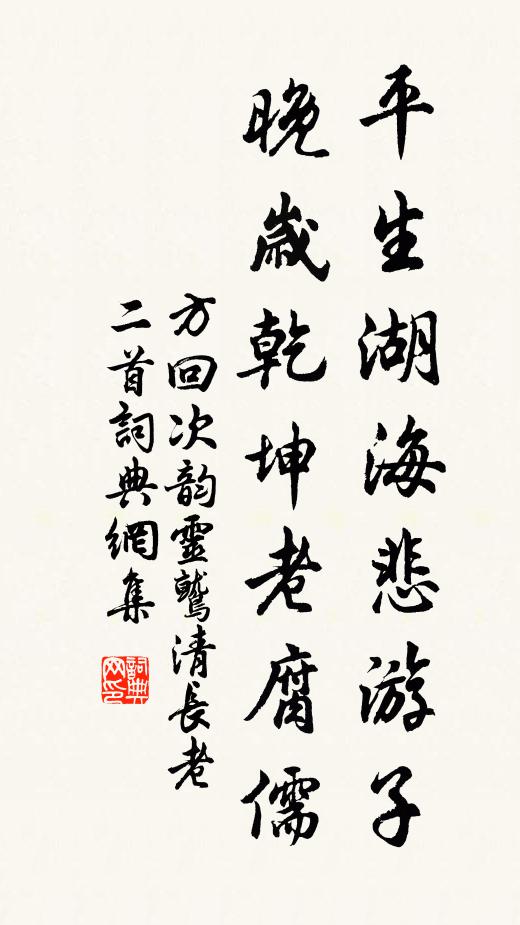 平生湖海悲游子
晚歲乾坤老腐儒
方回次韵靈鷲清長老
二首詞典網集
詞典网印